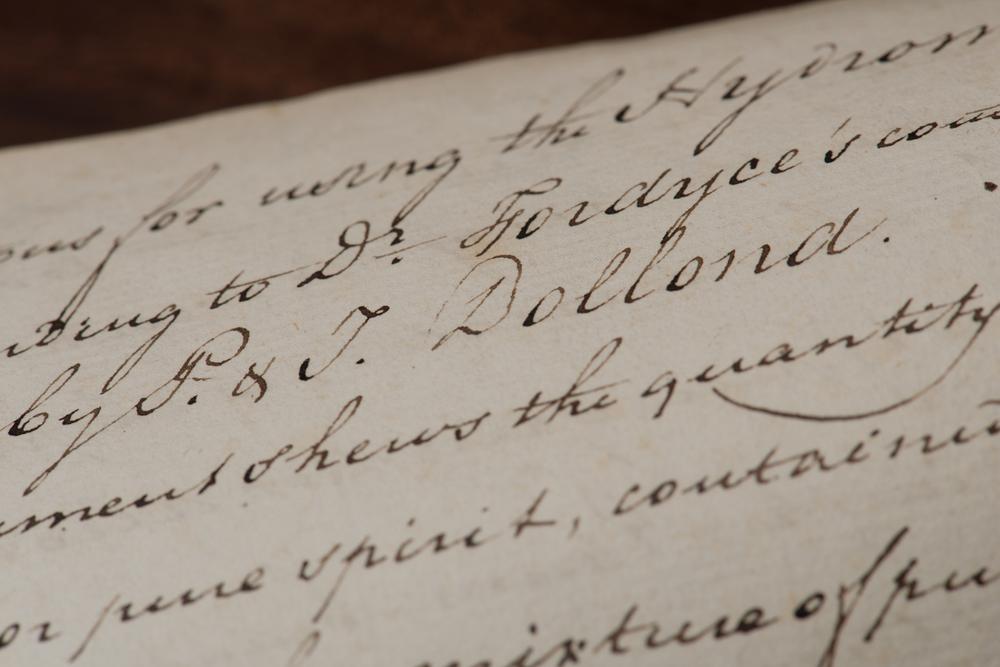 for using the Hydrom
to Dr. Fordyce's com
by P. & J. Dollond.
ument shews the quantity
or pure spirit, contained
mixture of pu